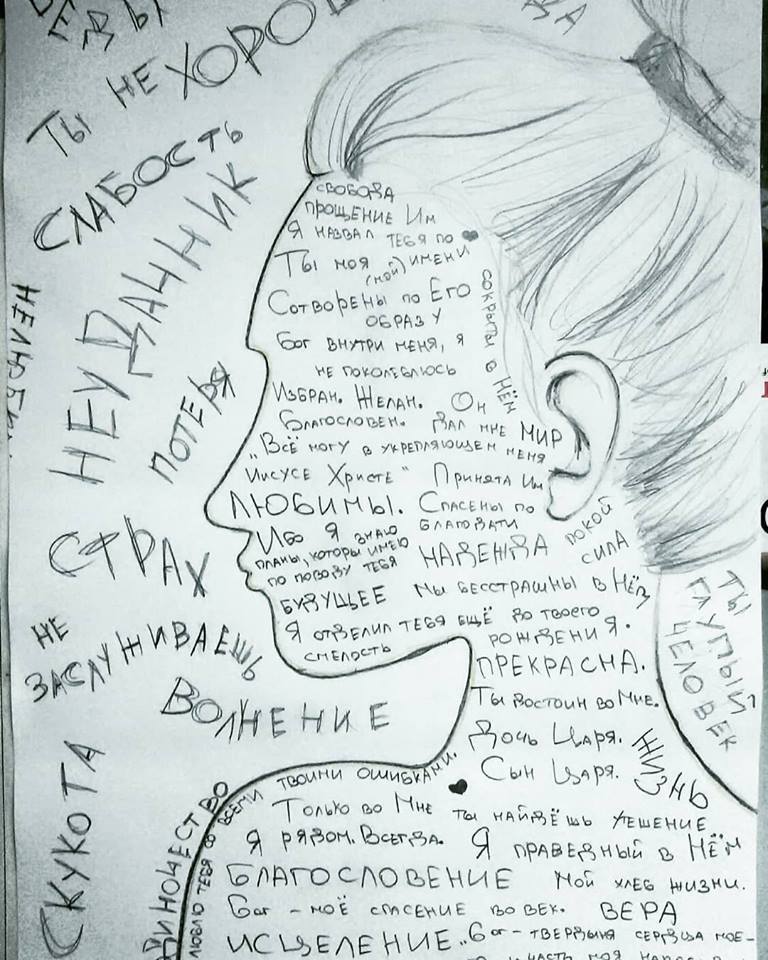 Ты не хоро
Слабость
Неудачник
потеря
Страх
не
заслуживаешь
Волнение
Скукота
свобода
прощение Им
Я назвал тебя по
Ты моя (мой) имени
Сотворены по Его
образу
Бог внутри меня, я
не поколеблюсь
сокрыты в Нём
Избран. Желан. Он
Благословен. дал мне мир
„Всё могу в укрепляющем меня
Иисусе Христе" Принята Им
Любимы. Спасены по
благодати
Ибо я знаю
планы, которы имею
по поводу тебя
надежда
покой
сила
будущее Мы бесстрашны в Нём
Я отделил тебя ещё до твоего
рождения.
смелость
прекрасна.
Ты достоин во Мне.
Дочь Царя.
Сын Царя.
жизнь
Ты
глупый
человек
люблю тебя со всеми твоими ошибками.
Только во Мне ты найдёшь утешение
Я рядом. Всегда. Я праведный в Нём
Благословение Мой хлеб жизни.
Бог – моё спасение во век. Вера
Исцеление „Бог – твердыня сердца мое-
часть моя